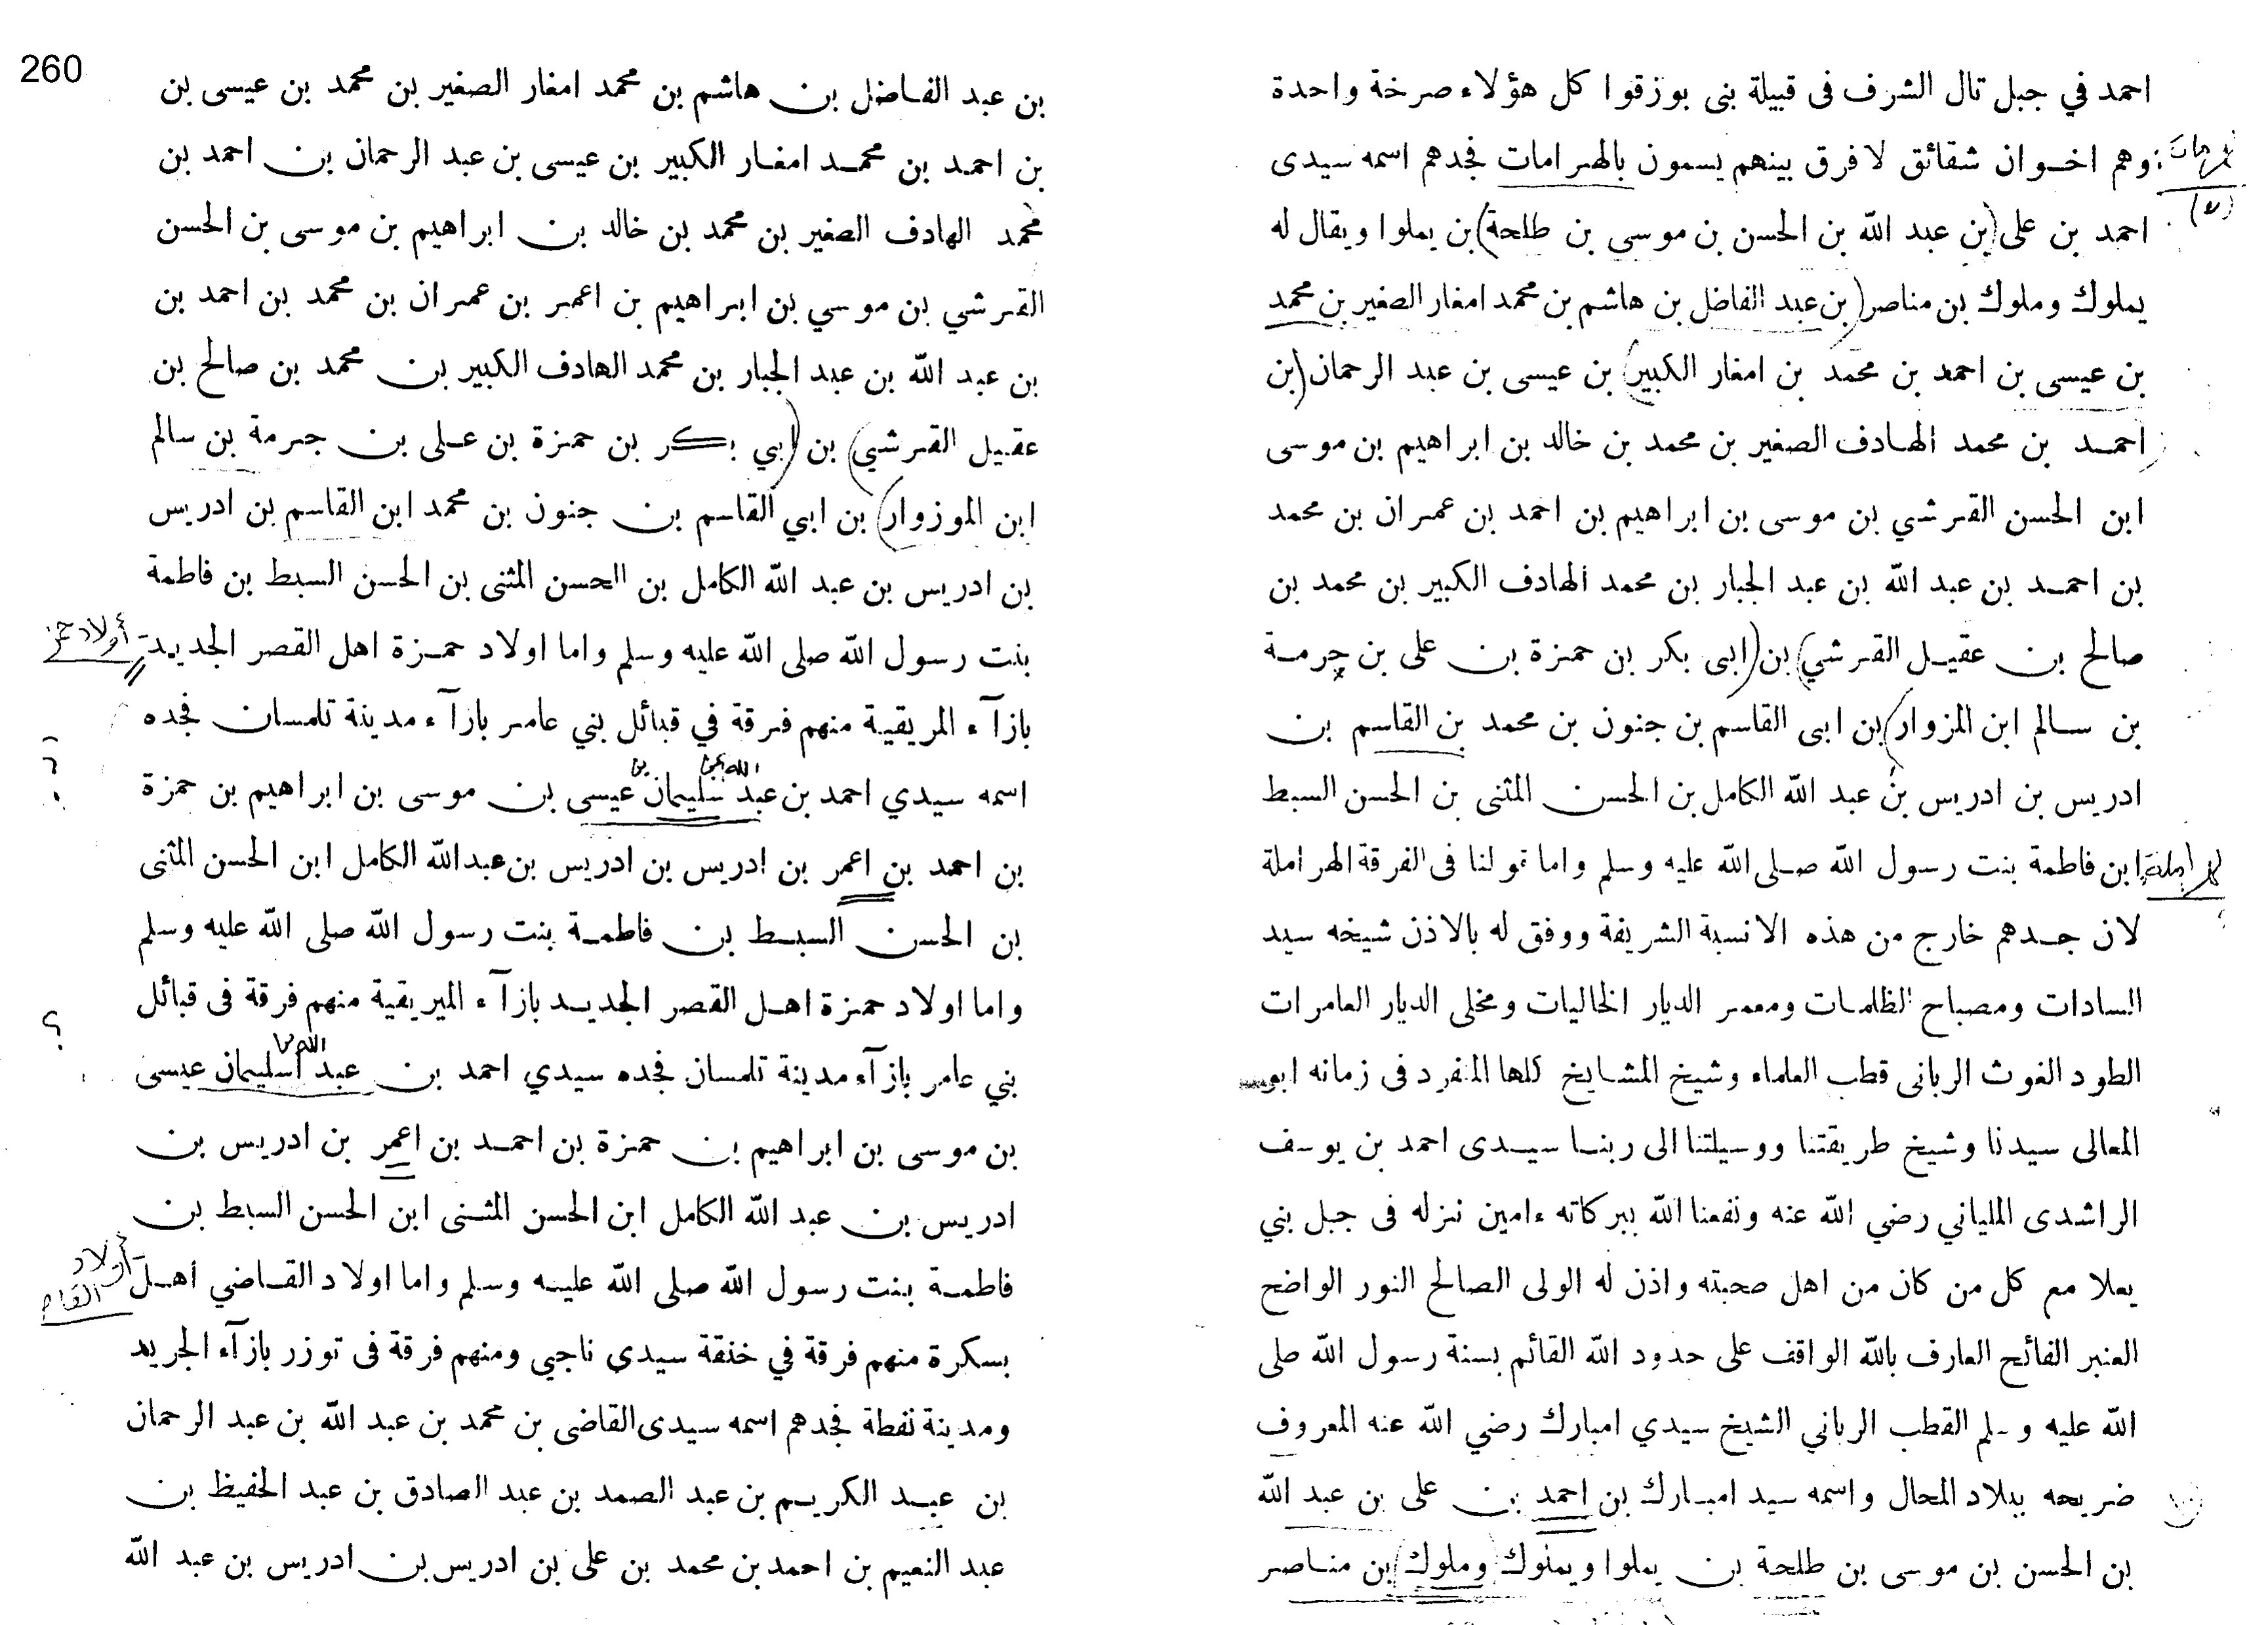 احمد في جبل تال الشرف فى قبيلة بنى بوزقوا كل هؤلاء صرخة واحدة
وهم اخوان شقائق لا فرق بينهم يسمون بالهرامات فجدهم اسمه سيدى
احمد بن على (بن عبد الله بن الحسن بن موسى بن طلحة) بن يملوا ويقال له
يملوك وملوك بن مناصر (بن عبد الفاضل بن هاشم بن محمد امغار الصغير بن محمد
بن عيسى بن احمد بن محمد بن امغار الكبير) بن عيسى بن عبد الرحمان (بن
احمد بن محمد الهادف الصغير بن محمد بن خالد بن ابراهيم بن موسى
ابن الحسن القرشي بن موسى بن ابراهيم بن احمد بن عمران بن محمد
بن احمد بن عبد الله بن عبد الجبار بن محمد الهادف الكبير بن محمد بن
صالح بن عقيل القرشي) بن (ابى بكر بن حمزة بن على بن جرمة
بن سالم ابن المزوار) بن ابى القاسم بن جنون بن محمد بن القاسم بن
ادريس بن ادريس بن عبد الله الكامل بن الحسن المثنى بن الحسن السبط
ابن فاطمة بنت رسول الله صلى الله عليه وسلم واما قولنا فى الفرقة الهراملة
لان جدهم خارج من هذه الانسبة الشريفة ووفق له بالاذن شيخه سيد
السادات ومصباح الظلمات ومعمر الديار الخاليات ومخلى الديار العامرات
الطود الغوث الربانى قطب العلماء وشيخ المشايخ كلها المنفرد فى زمانه ابو
المعالى سيدنا وشيخ طريقتنا ووسيلتنا الى ربنا سيدى احمد بن يوسف
الراشدى الملياني رضي الله عنه ونفعنا الله ببركاته ءامين نزله فى جبل بني
يعلا مع كل من كان من اهل صحبته واذن له الولى الصالح النور الواضح
العنبر الفائح العارف بالله الواقف على حدود الله القائم بسنة رسول الله صلى
الله عليه وسلم القطب الرباني الشيخ سيدي امبارك رضي الله عنه المعروف
ضريحه ببلاد المحال واسمه سيد امبارك بن احمد بن على بن عبد الله
بن الحسن بن موسى بن طلحة بن يملوا ويملوك (وملوك) بن مناصر
260
بن عبد الفاضل بن هاشم بن محمد امغار الصغير بن محمد بن عيسى بن
بن احمد بن محمد امغار الكبير بن عيسى بن عبد الرحمان بن احمد بن
محمد الهادف الصغير بن محمد بن خالد بن ابراهيم بن موسى بن الحسن
القرشي بن موسي بن ابراهيم بن اعمر بن عمران بن محمد بن احمد بن
بن عبد الله بن عبد الجبار بن محمد الهادف الكبير بن محمد بن صالح بن
عقيل القرشي) بن (ابي بكر بن حمزة بن على بن جرمة بن سالم
ابن الموزوار) بن ابي القاسم بن جنون بن محمد ابن القاسم بن ادريس
بن ادريس بن عبد الله الكامل بن الحسن المثنى بن الحسن السبط بن فاطمة
بنت رسول الله صلى الله عليه وسلم واما اولاد حمزة اهل القصر الجديد
بازآء المريقية منهم فرقة في قبائل بني عامر بازآء مدينة تلمسان فجده
اسمه سيدي احمد بن عبد سليمان عيسى بن موسى بن ابراهيم بن حمزة
بن احمد بن اعمر بن ادريس بن ادريس بن عبدالله الكامل ابن الحسن المثنى
بن الحسن السبط بن فاطمة بنت رسول الله صلى الله عليه وسلم
واما اولاد حمزة اهل القصر الجديد بازآء الميريقية منهم فرقة فى قبائل
بني عامر بازآء مدينة تلمسان فجده سيدي احمد بن عبد اسليمان عيسى
بن موسى بن ابراهيم بن حمزة بن احمد بن اعمر بن ادريس بن
ادريس بن عبد الله الكامل ابن الحسن المثنى ابن الحسن السبط بن
فاطمة بنت رسول الله صلى الله عليه وسلم واما اولاد القاضي اهل
أولاد
بسكرة منهم فرقة في خنقة سيدي ناجي ومنهم فرقة فى توزر بازآء الجريد
ومدينة نفطة فجدهم اسمه سيدى القاضى بن محمد بن عبد الله بن عبد الرحمان
بن عبد الكريم بن عبد الصمد بن عبد الصادق بن عبد الحفيظ بن
عبد النعيم بن احمد بن محمد بن على بن ادريس بن ادريس بن عبد الله